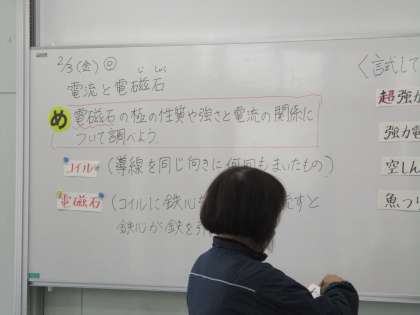 2/3(金) ◎
電流と電磁石
じしゃく
め
電磁石の極の性質や強さと電流の関係に
ついて調べよう。
コイル
(導線を同じ向きに何回もまいたもの)
電磁石
(コイルに鉄心を すと
鉄心が鉄を
〈試して
超強力
強力電
空しん
魚つり